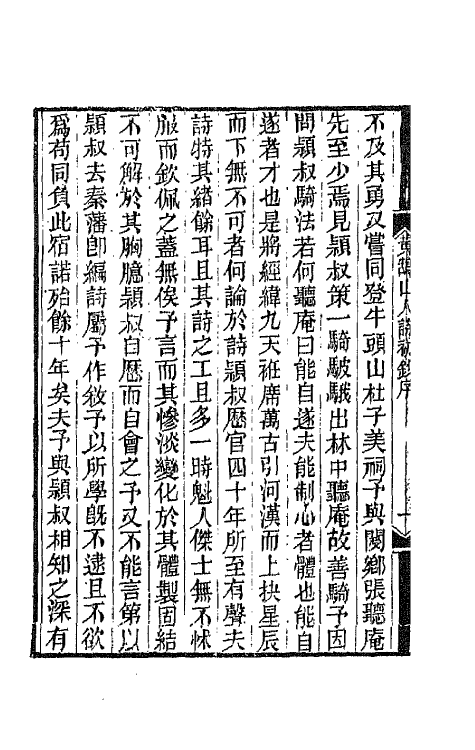 不及其勇又嘗同登牛頭山杜子美祠予與閿鄉張聽庵
先至少焉見穎叔策一騎駊騀出林中聽庵故善騎予因
問穎叔騎法若何聽庵曰能自遂夫能制心者體也能自
遂者才也是將經緯九天袵席萬古引河漢而上抉星辰
而下無不可者何論於詩穎叔歷官四十年所至有聲夫
詩特其緒餘耳且其詩之工且多一時魁人傑士無不怵
服而欽佩之蓋無俟予言而其慘淡變化於其體製固結
不可解於其胸臆穎叔自歷而自會之予又不能言第以
穎叔去秦藩卽編詩屬予作敘予以所學既不逮且不欲
爲苟同負此宿諾殆餘十年矣夫予與穎叔相知之深有